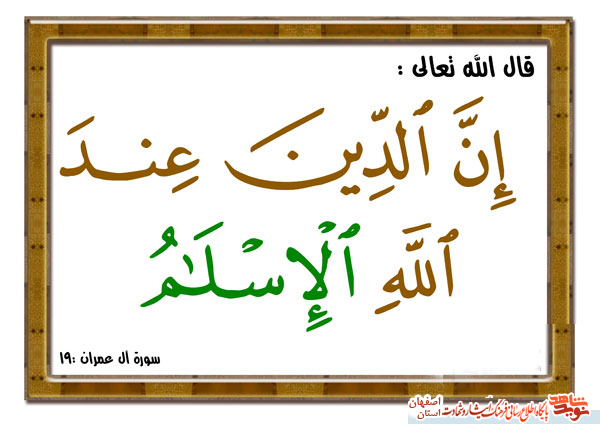 قال الله تعالى :
إِنَّ ٱلدِّينَ عِندَ
ٱللَّهِ ٱلْإِسْلَـٰمُ
سورة آل عمران :١٩
نوید شاهد پایگاه اطلاع رسانی فرهنگ ایثار و شهادت استان اصفهان